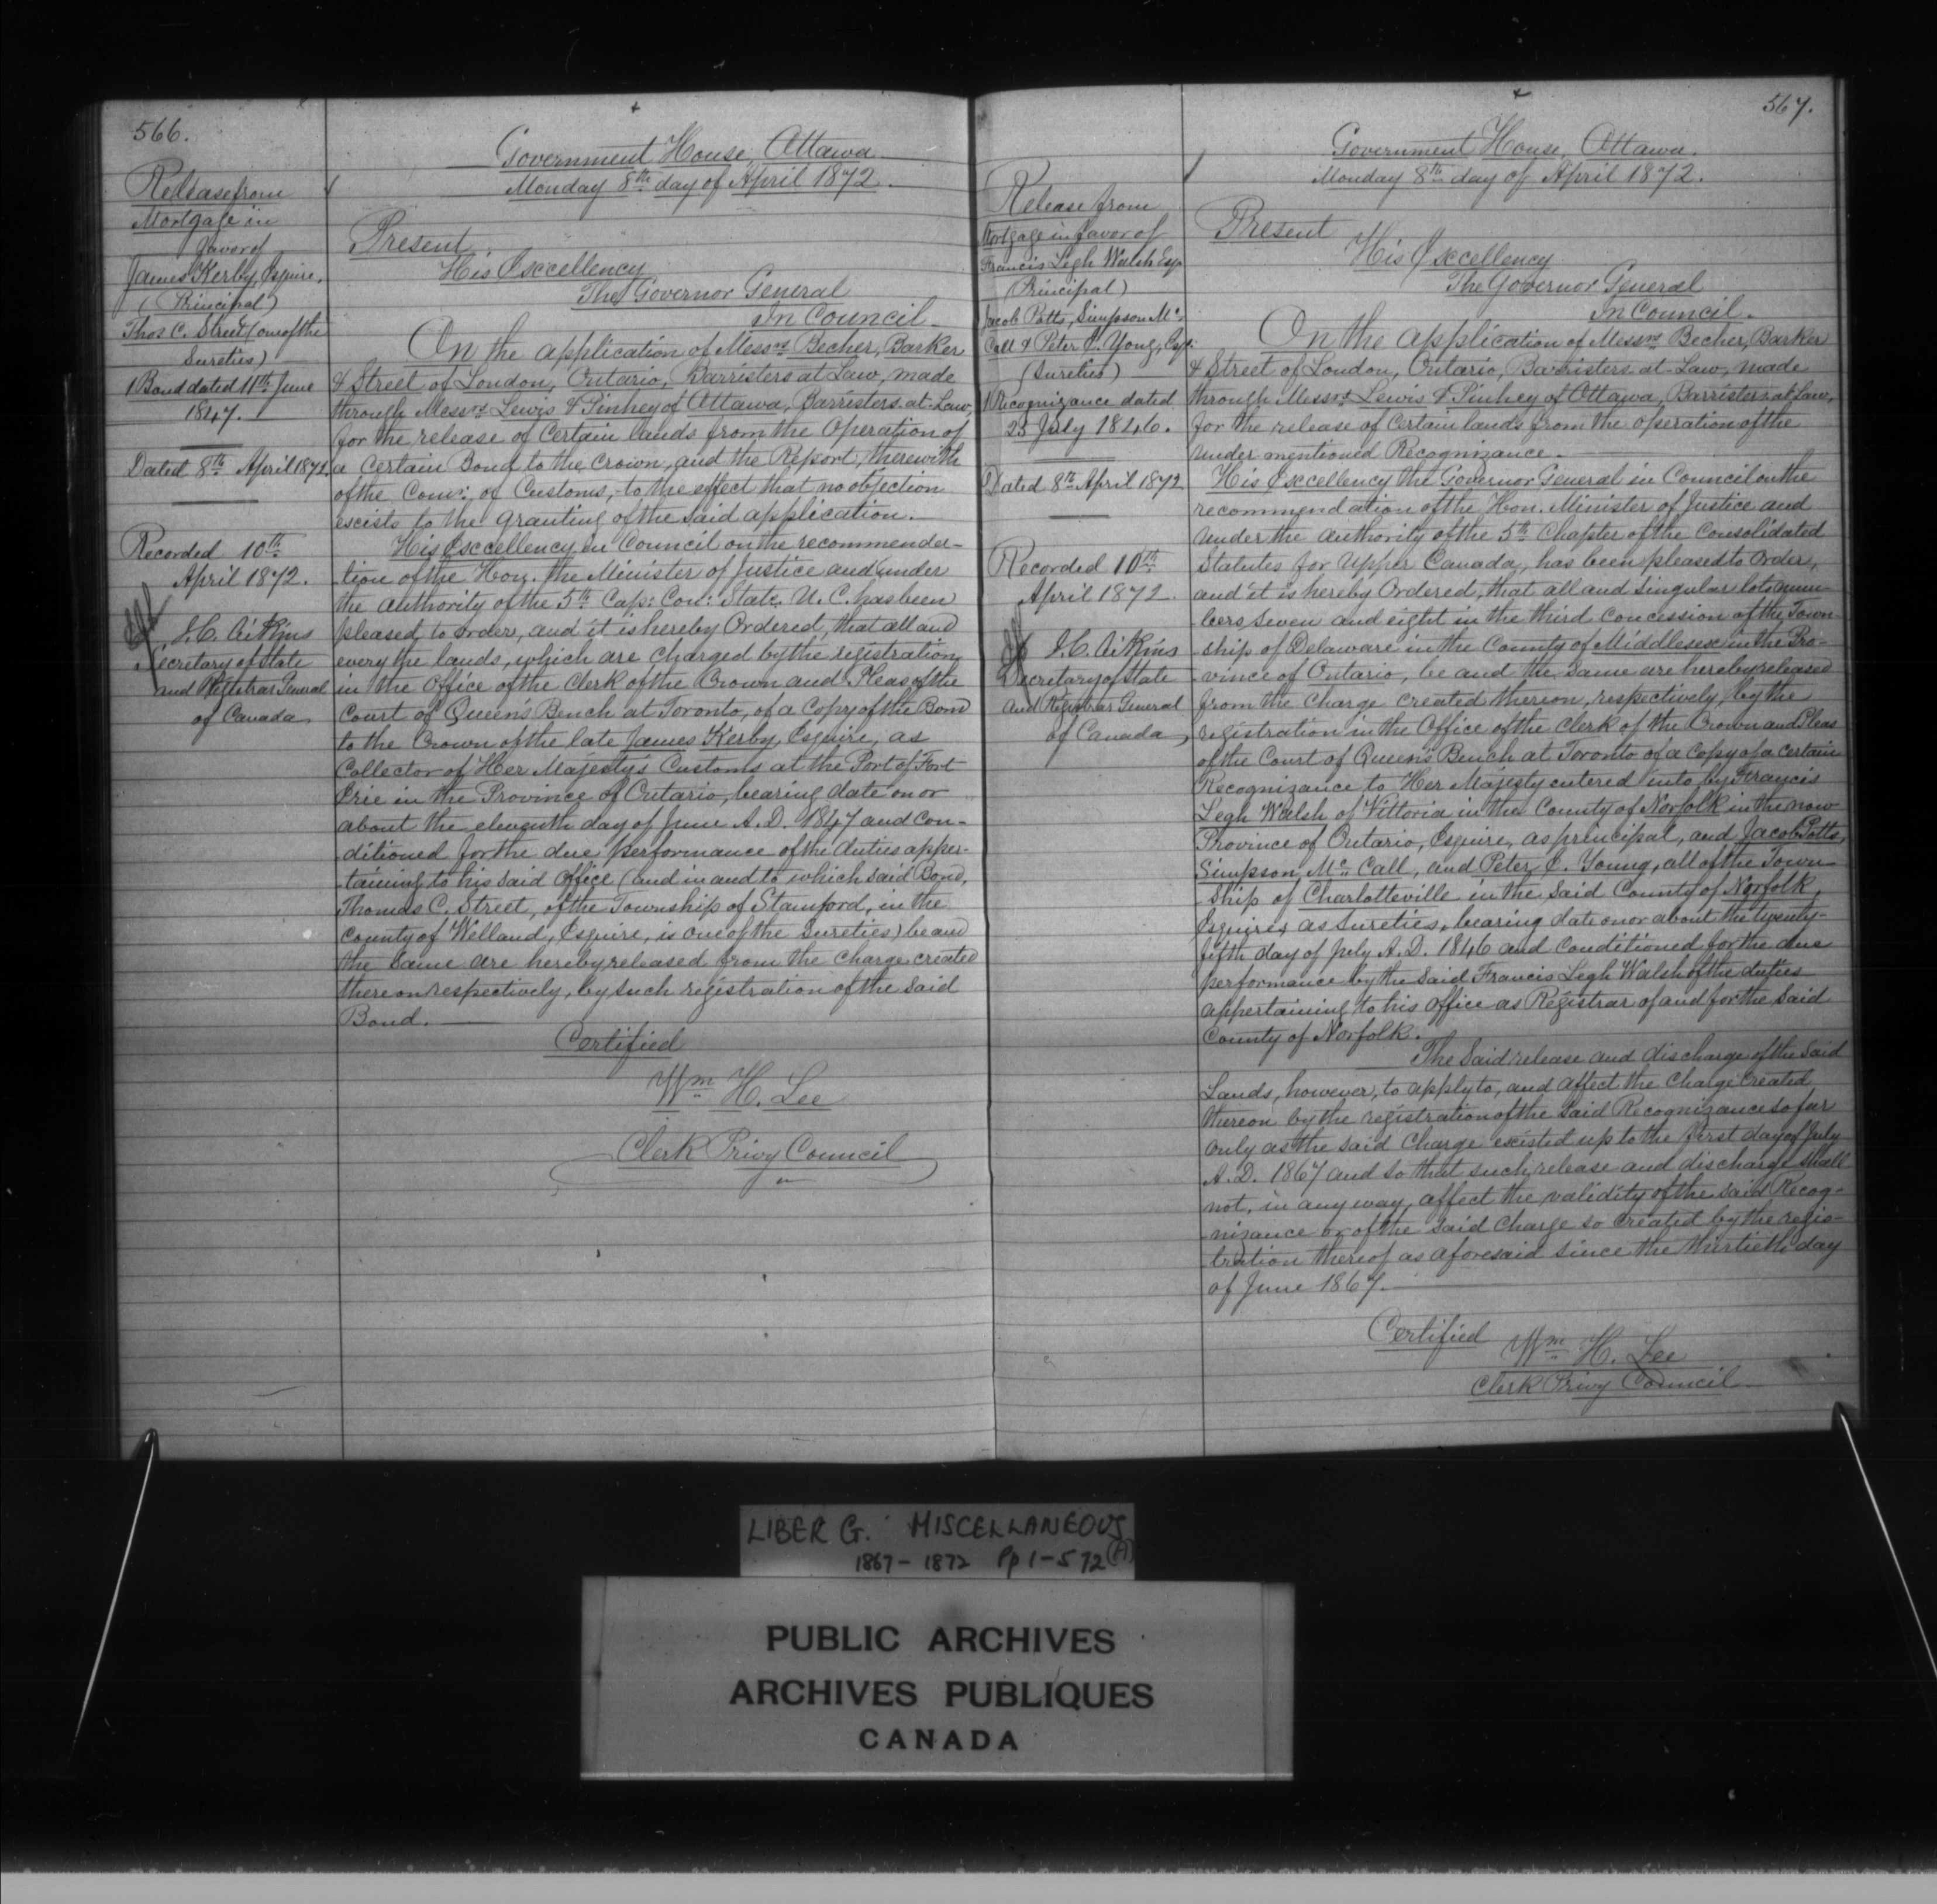 566.
Release from
Mortgage in
favor of
James Kerby, Esquire,
(Principal)
Thos C. Street (one of the
Sureties)
1 Bond dated 11th June
1847.
Dated 8th April 1872.
Recorded 10th
April 1872.
J.C. Aikins
Secretary of State
and Registrar General
of Canada
Government House, Ottawa
Monday 8th day of April 1872.
Present
His Excellency
The Governor General
In Council.
On the application of Messrs Becher, Barker
& Street of London, Ontario, Barristers at Law, made
through Messrs Lewis & Pinhey of Ottawa, Barristers-at-Law,
for the release of certain lands from the operation of
a certain Bond to the Crown, and the Report, therewith
of the Comr: of Customs, to the effect that no objection
exists to the granting of the said application.
His Excellency in Council on the recommenda-
tion of the Hon. the Minister of Justice and under
the authority of the 5th Cap: Con: Stats. U.C. has been
pleased to order, and it is hereby Ordered, that all and
every the lands, which are charged by the registration
in the Office of the Clerk of the Crown and Pleas of the
Court of Queen's Bench at Toronto, of a Copy of the Bond
to the Crown of the late James Kerby, Esquire, as
Collector of Her Majesty's Customs at the Port of Fort
Erie in the Province of Ontario, bearing date on or
about the eleventh day of June A.D. 1847 and con-
ditioned for the due performance of the duties apper-
taining to his said office (and in and to which said Bond,
Thomas C. Street, of the Township of Stamford, in the
County of Welland, Esquire, is one of the Sureties) be and
the same are hereby released from the charge created
thereon respectively, by such registration of the said
Bond.
Certified
Wm H. Lee
Clerk Privy Council
567.
Release from
Mortgage in favor of
Francis Legh Walsh Esq.
(Principal)
Jacob Potts, Simpson Mc
Call & Peter C. Yong, Esqs.
(Sureties)
1 Recognizance dated
25 July 1846.
Dated 8th April 1872
Recorded 10th
April 1872.
J.C. Aikins
Secretary of State
and Registrar General
of Canada,
Government House, Ottawa.
Monday 8th day of April 1872.
Present
His Excellency
The Governor General
In Council.
On the application of Messrs Becher, Barker
& Street of London, Ontario, Barristers-at-Law, made
through Messrs Lewis & Pinhey of Ottawa, Barristers at Law,
for the release of certain lands from the operation of the
under mentioned Recognizance.
His Excellency the Governor General in Council on the
recommendation of the Hon. Minister of Justice and
under the authority of the 5th Chapter of the Consolidated
Statutes for Upper Canada, has been pleased to Order,
and it is hereby Ordered, that all and singular lots num-
bers seven and eight in the third concession of the Town-
ship of Delaware in the County of Middlesex in the Pro-
vince of Ontario, be and the same are hereby released
from the charge created thereon, respectively, by the
registration in the Office of the Clerk of the Crown and Pleas
of the Court of Queen's Bench at Toronto of a copy of a certain
Recognizance to Her Majesty entered into by Francis
Legh Walsh of Vittoria in the County of Norfolk in the now
Province of Ontario, Esquire, as principal, and Jacob Potts,
Simpson Mc Call, and Peter C. Young, all of the Town-
ship of Charlotteville in the said County of Norfolk,
Esquires as Sureties, bearing date on or about the twenty-
fifth day of July A.D. 1846 and conditioned for the due
performance by the said Francis Legh Walsh of the duties
appertaining to his office as Registrar of and for the said
County of Norfolk.
The said release and discharge of the said
Lands, however, to apply to, and affect the charge created
thereon by the registration of the said Recognizance so far
only as the said charge existed up to the First day of July
A.D. 1867 and so that such release and discharge shall
not, in any way, affect the validity of the said Recog-
nizance or of the said charge so created by the regis-
tration thereof as aforesaid since the thirtieth day
of June 1867.
Certified
Wm H. Lee
Clerk Privy Council
LIBER G. MISCELLANEOUS
1867-1872 Pp 1-572 (A)
PUBLIC ARCHIVES
ARCHIVES PUBLIQUES
CANADA